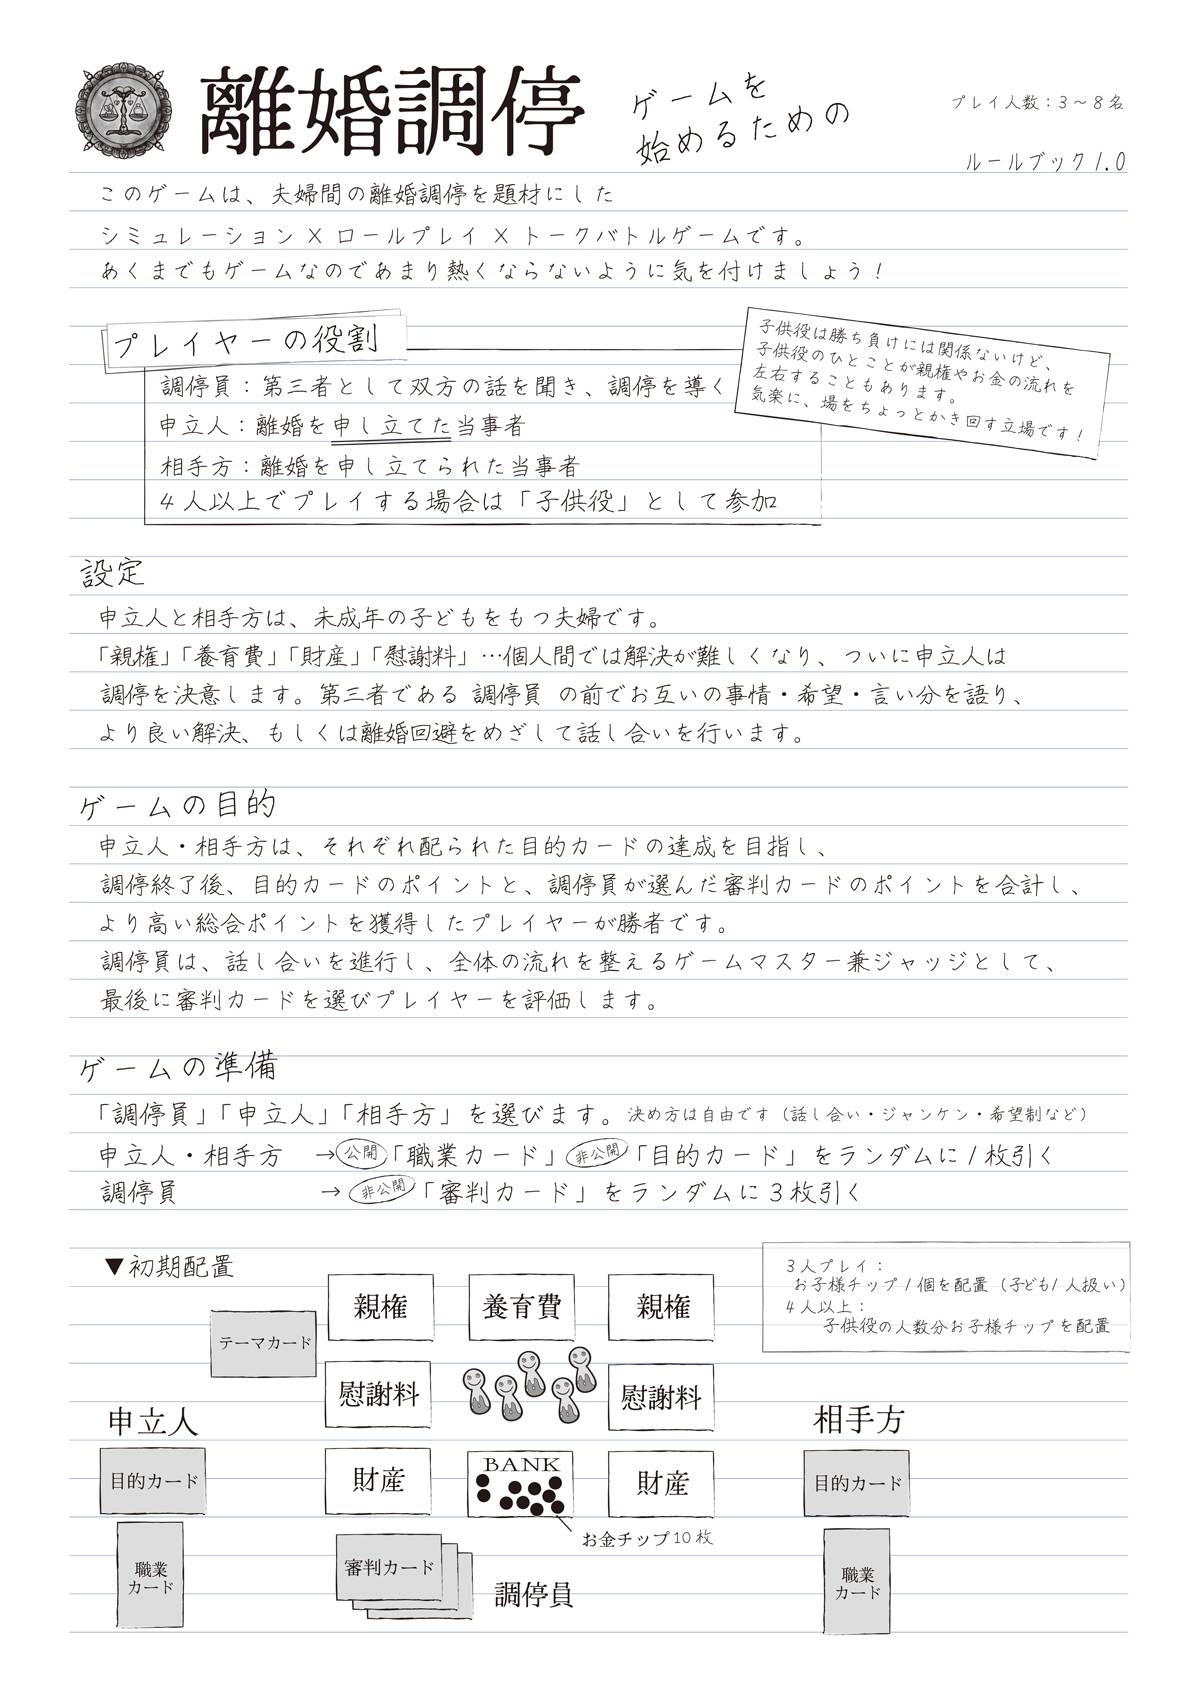 離婚調停
ゲームを
始めるための
プレイ人数：3～8名
ルールブック1.0
このゲームは、夫婦間の離婚調停を題材にした
シミュレーション×ロールプレイ×トークバトルゲームです。
あくまでもゲームなのであまり熱くならないように気を付けましょう！
プレイヤーの役割
調停員：第三者として双方の話を聞き、調停を導く
申立人：離婚を申し立てた当事者
相手方：離婚を申し立てられた当事者
4人以上でプレイする場合は「子供役」として参加
子供役は勝ち負けには関係ないけど、
子供役のひとことが親権やお金の流れを
左右することもあります。
気楽に、場をちょっとかき回す立場です！
設定
申立人と相手方は、未成年の子どもをもつ夫婦です。
「親権」「養育費」「財産」「慰謝料」…個人間では解決が難しくなり、ついに申立人は
調停を決意します。第三者である 調停員 の前でお互いの事情・希望・言い分を語り、
より良い解決、もしくは離婚回避をめざして話し合いを行います。
ゲームの目的
申立人・相手方は、それぞれ配られた目的カードの達成を目指し、
調停終了後、目的カードのポイントと、調停員が選んだ審判カードのポイントを合計し、
より高い総合ポイントを獲得したプレイヤーが勝者です。
調停員は、話し合いを進行し、全体の流れを整えるゲームマスター兼ジャッジとして、
最後に審判カードを選びプレイヤーを評価します。
ゲームの準備
「調停員」「申立人」「相手方」を選びます。決め方は自由です（話し合い・ジャンケン・希望制など）
申立人・相手方 →公開「職業カード」非公開「目的カード」をランダムに1枚引く
調停員 →非公開「審判カード」をランダムに3枚引く
▼初期配置
3人プレイ：
お子様チップ1個を配置（子ども1人扱い）
4人以上：
子供役の人数分お子様チップを配置
親権 養育費 親権
テーマカード
慰謝料 慰謝料
申立人 相手方
目的カード 財産 BANK 財産 目的カード
お金チップ10枚
職業
カード
審判カード
調停員
職業
カード